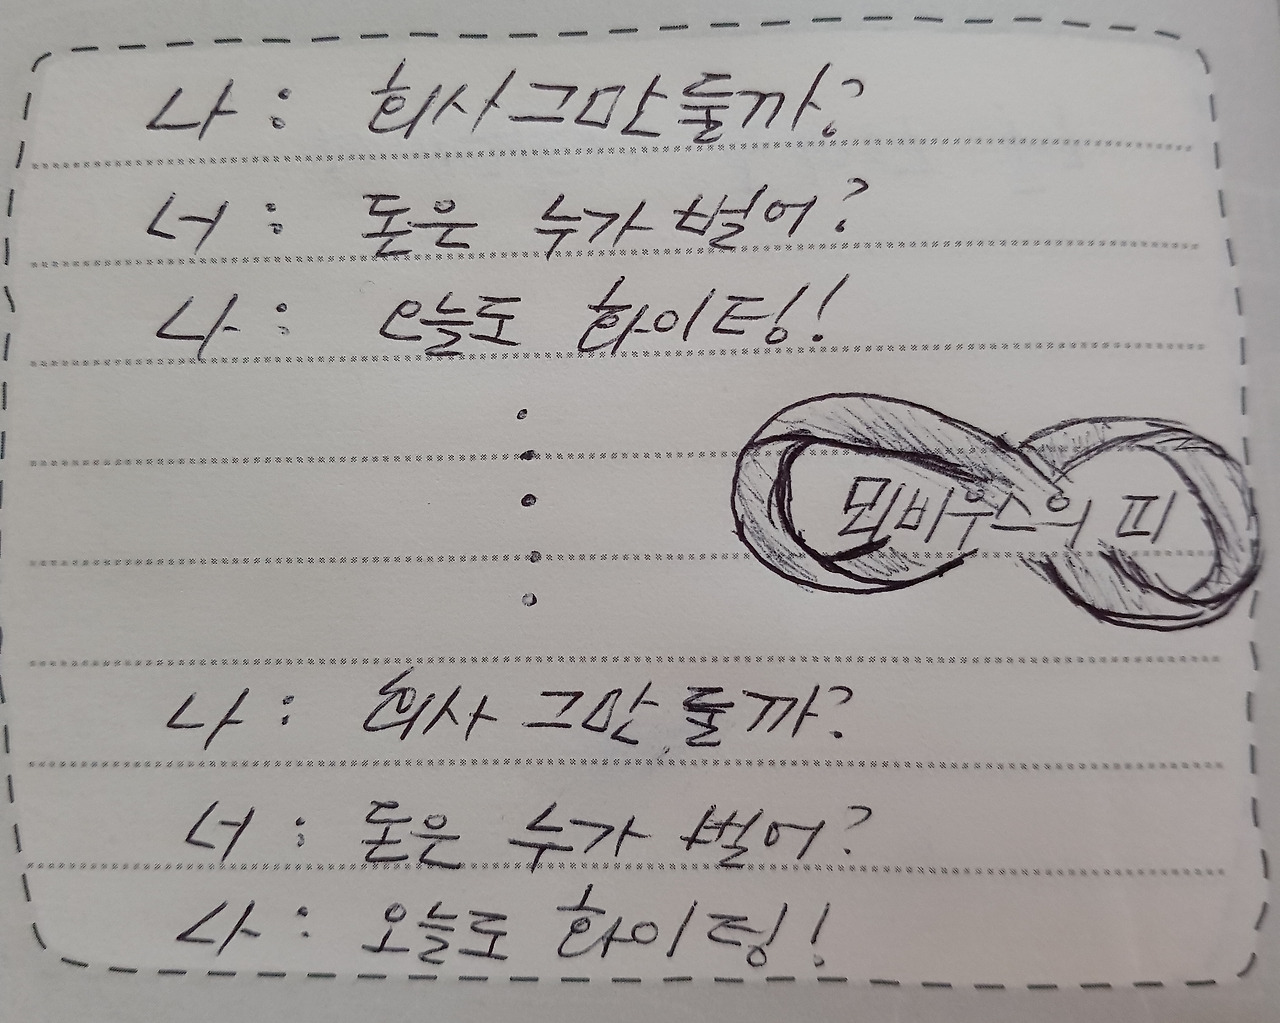 나 : 회사 그만 둘까?
너 : 돈은 누가 벌어?
나 : 오늘도 화이팅!
뫼비우스의 띠
나 : 회사 그만 둘까?
너 : 돈은 누가 벌어?
나 : 오늘도 화이팅!